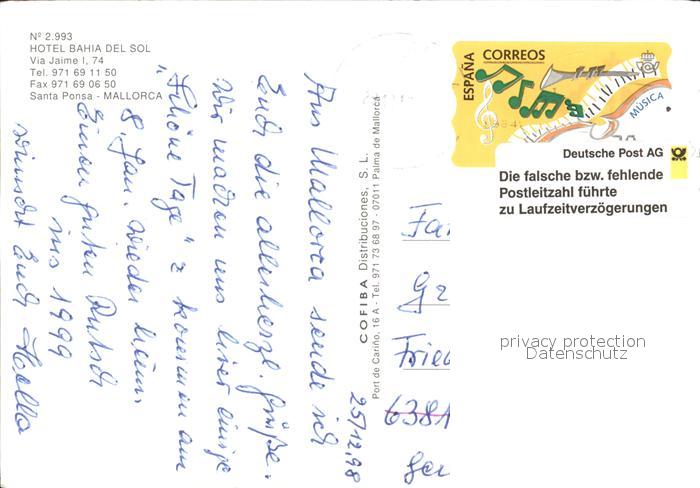 Nº 2.993
HOTEL BAHIA DEL SOL
Via Jaime I, 74
Tel. 971 69 11 50
Fax 971 69 06 50
Santa Ponsa - MALLORCA
Aus Mallorca sende ich
Euch die allerherzl. Grüße.
Wir machen uns hier einige
"schöne Tage" & kommen am
8. Jan. wieder heim.
Einen guten Rutsch
ins 1999
wünscht Euch Hella
25/12.98
COFIBA Distribuciones, S. L.
Port de Cariño, 16 A - Tel. 971 73 68 97 - 07011 Palma de Mallorca
ESPAÑA
CORREOS
MÚSICA
Deutsche Post AG
Die falsche bzw. fehlende
Postleitzahl führte
zu Laufzeitverzögerungen
Fa
G
Frie
6381
Ge
privacy protection
Datenschutz